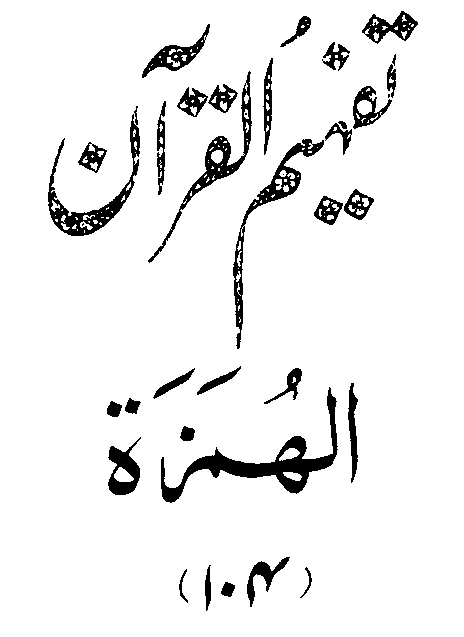 تفہیمُ القرآن
الهُمَزَة
(۱۰۴)